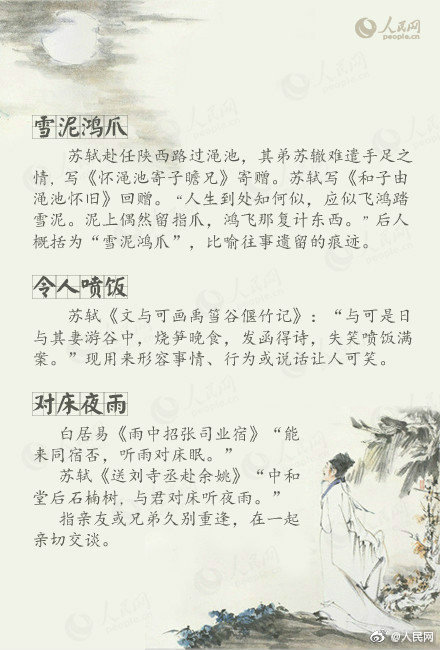 人民网
people.cn
雪泥鸿爪
苏轼赴任陕西路过渑池，其弟苏辙难遣手足之
情，写《怀渑池寄子瞻兄》寄赠。苏轼写《和子由
渑池怀旧》回赠。“人生到处知何似，应似飞鸿踏
雪泥。泥上偶然留指爪，鸿飞那复计东西。”后人
概括为“雪泥鸿爪”，比喻往事遗留的痕迹。
令人喷饭
苏轼《文与可画筼筜谷偃竹记》：“与可是日
与其妻游谷中，烧笋晚食，发函得诗，失笑喷饭满
案。”现用来形容事情、行为或说话让人可笑。
对床夜雨
白居易《雨中招张司业宿》“能
来同宿否，听雨对床眠。”
苏轼《送刘寺丞赴余姚》“中和
堂后石楠树，与君对床听夜雨。”
指亲友或兄弟久别重逢，在一起
亲切交谈。
@人民网